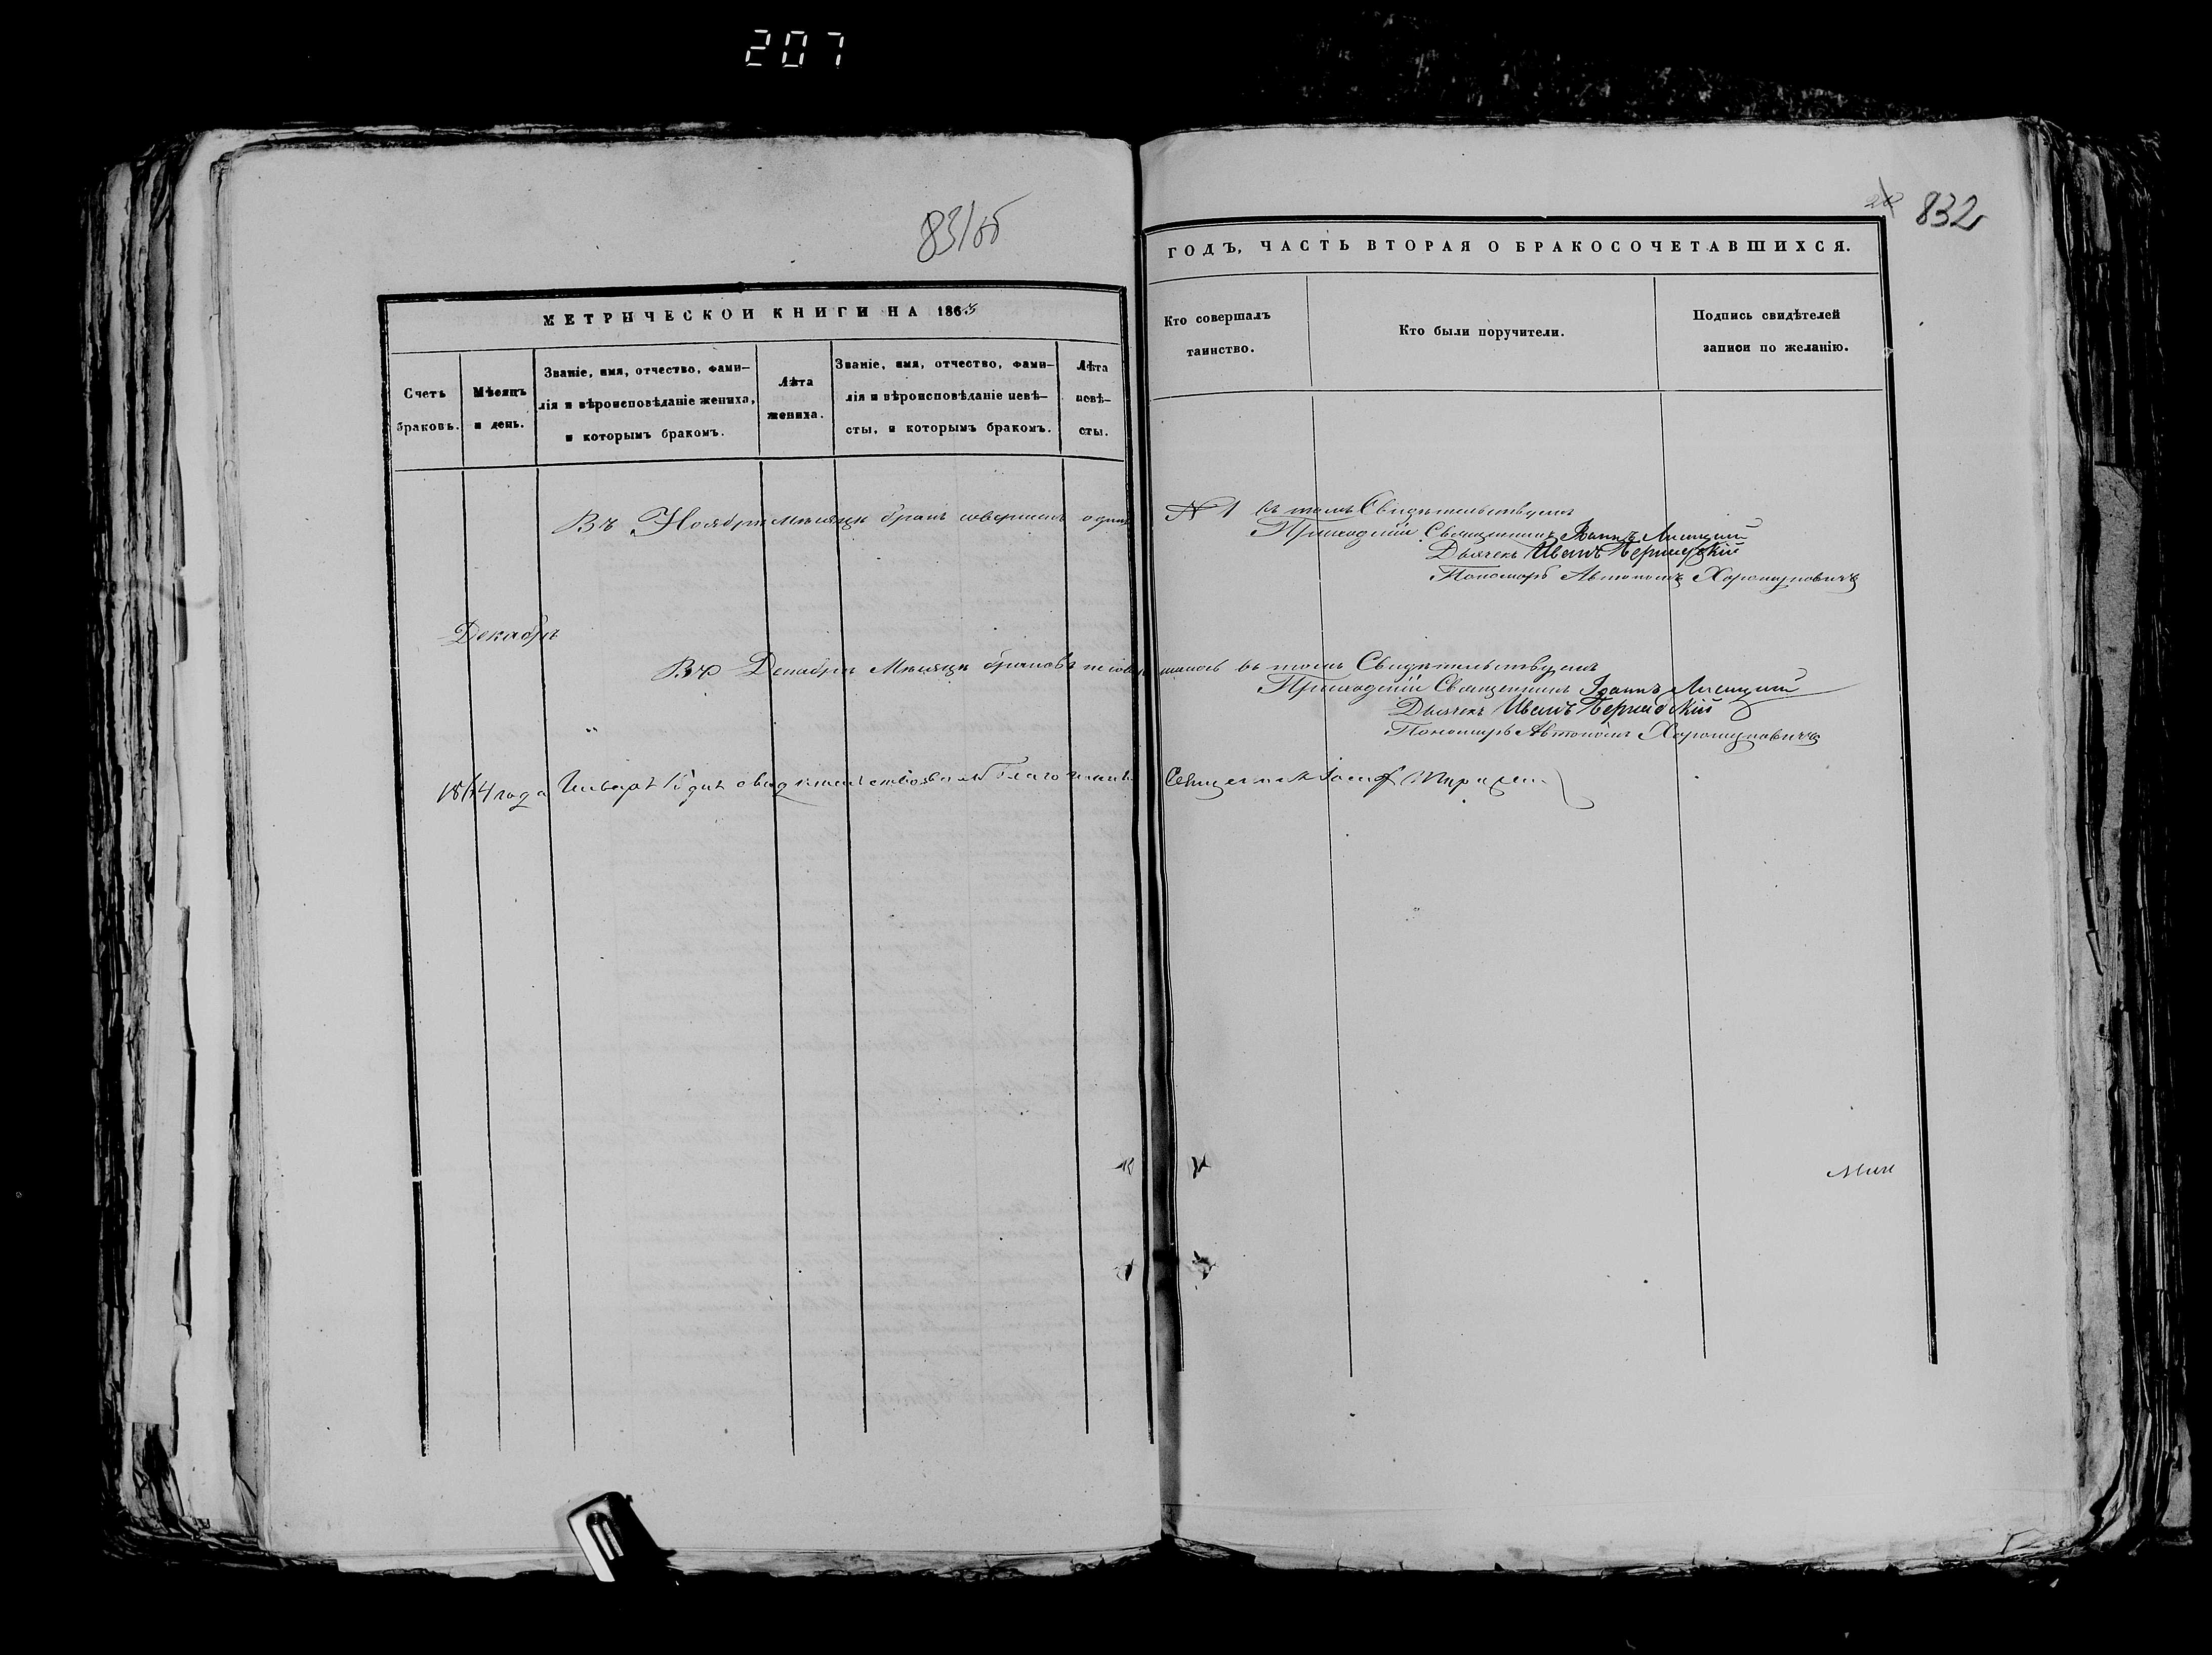 207
831об
832
МЕТРИЧЕСКОЙ КНИГИ НА 1863
ГОДЪ, ЧАСТЬ ВТОРАЯ О БРАКОСОЧЕТАВШИХСЯ.
Счетъ браковъ.
Мѣсяцъ и день.
Званіе, имя, отчество, фами-
лія и вѣроисповѣданіе жениха,
и которымъ бракомъ.
Лѣта жениха.
Званіе, имя, отчество, фами-
лія и вѣроисповѣданіе невѣ-
сты, и которымъ бракомъ.
Лѣта невѣ-
сты.
Кто совершалъ
таинство.
Кто были поручители.
Подпись свидѣтелей
записи по желанію.
Въ Ноябрѣ мѣсяцѣ бракъ совершенъ одинъ № 1 въ томъ Свидѣтельствуемъ
Приходскій Священникъ Іоаннъ Лисицкій
Дьячекъ Иванъ
Пономарь Автономъ
Декабрь
Въ Декабрѣ Мѣсяцѣ браковъ не совершалось въ томъ Свидѣтельствуемъ
Приходскій Священникъ Іоаннъ Лисицкій
Дьячекъ Иванъ
Пономарь Автономъ
1864 года Январь дня свидѣтельствовалъ Благочинный Священникъ Іосифъ